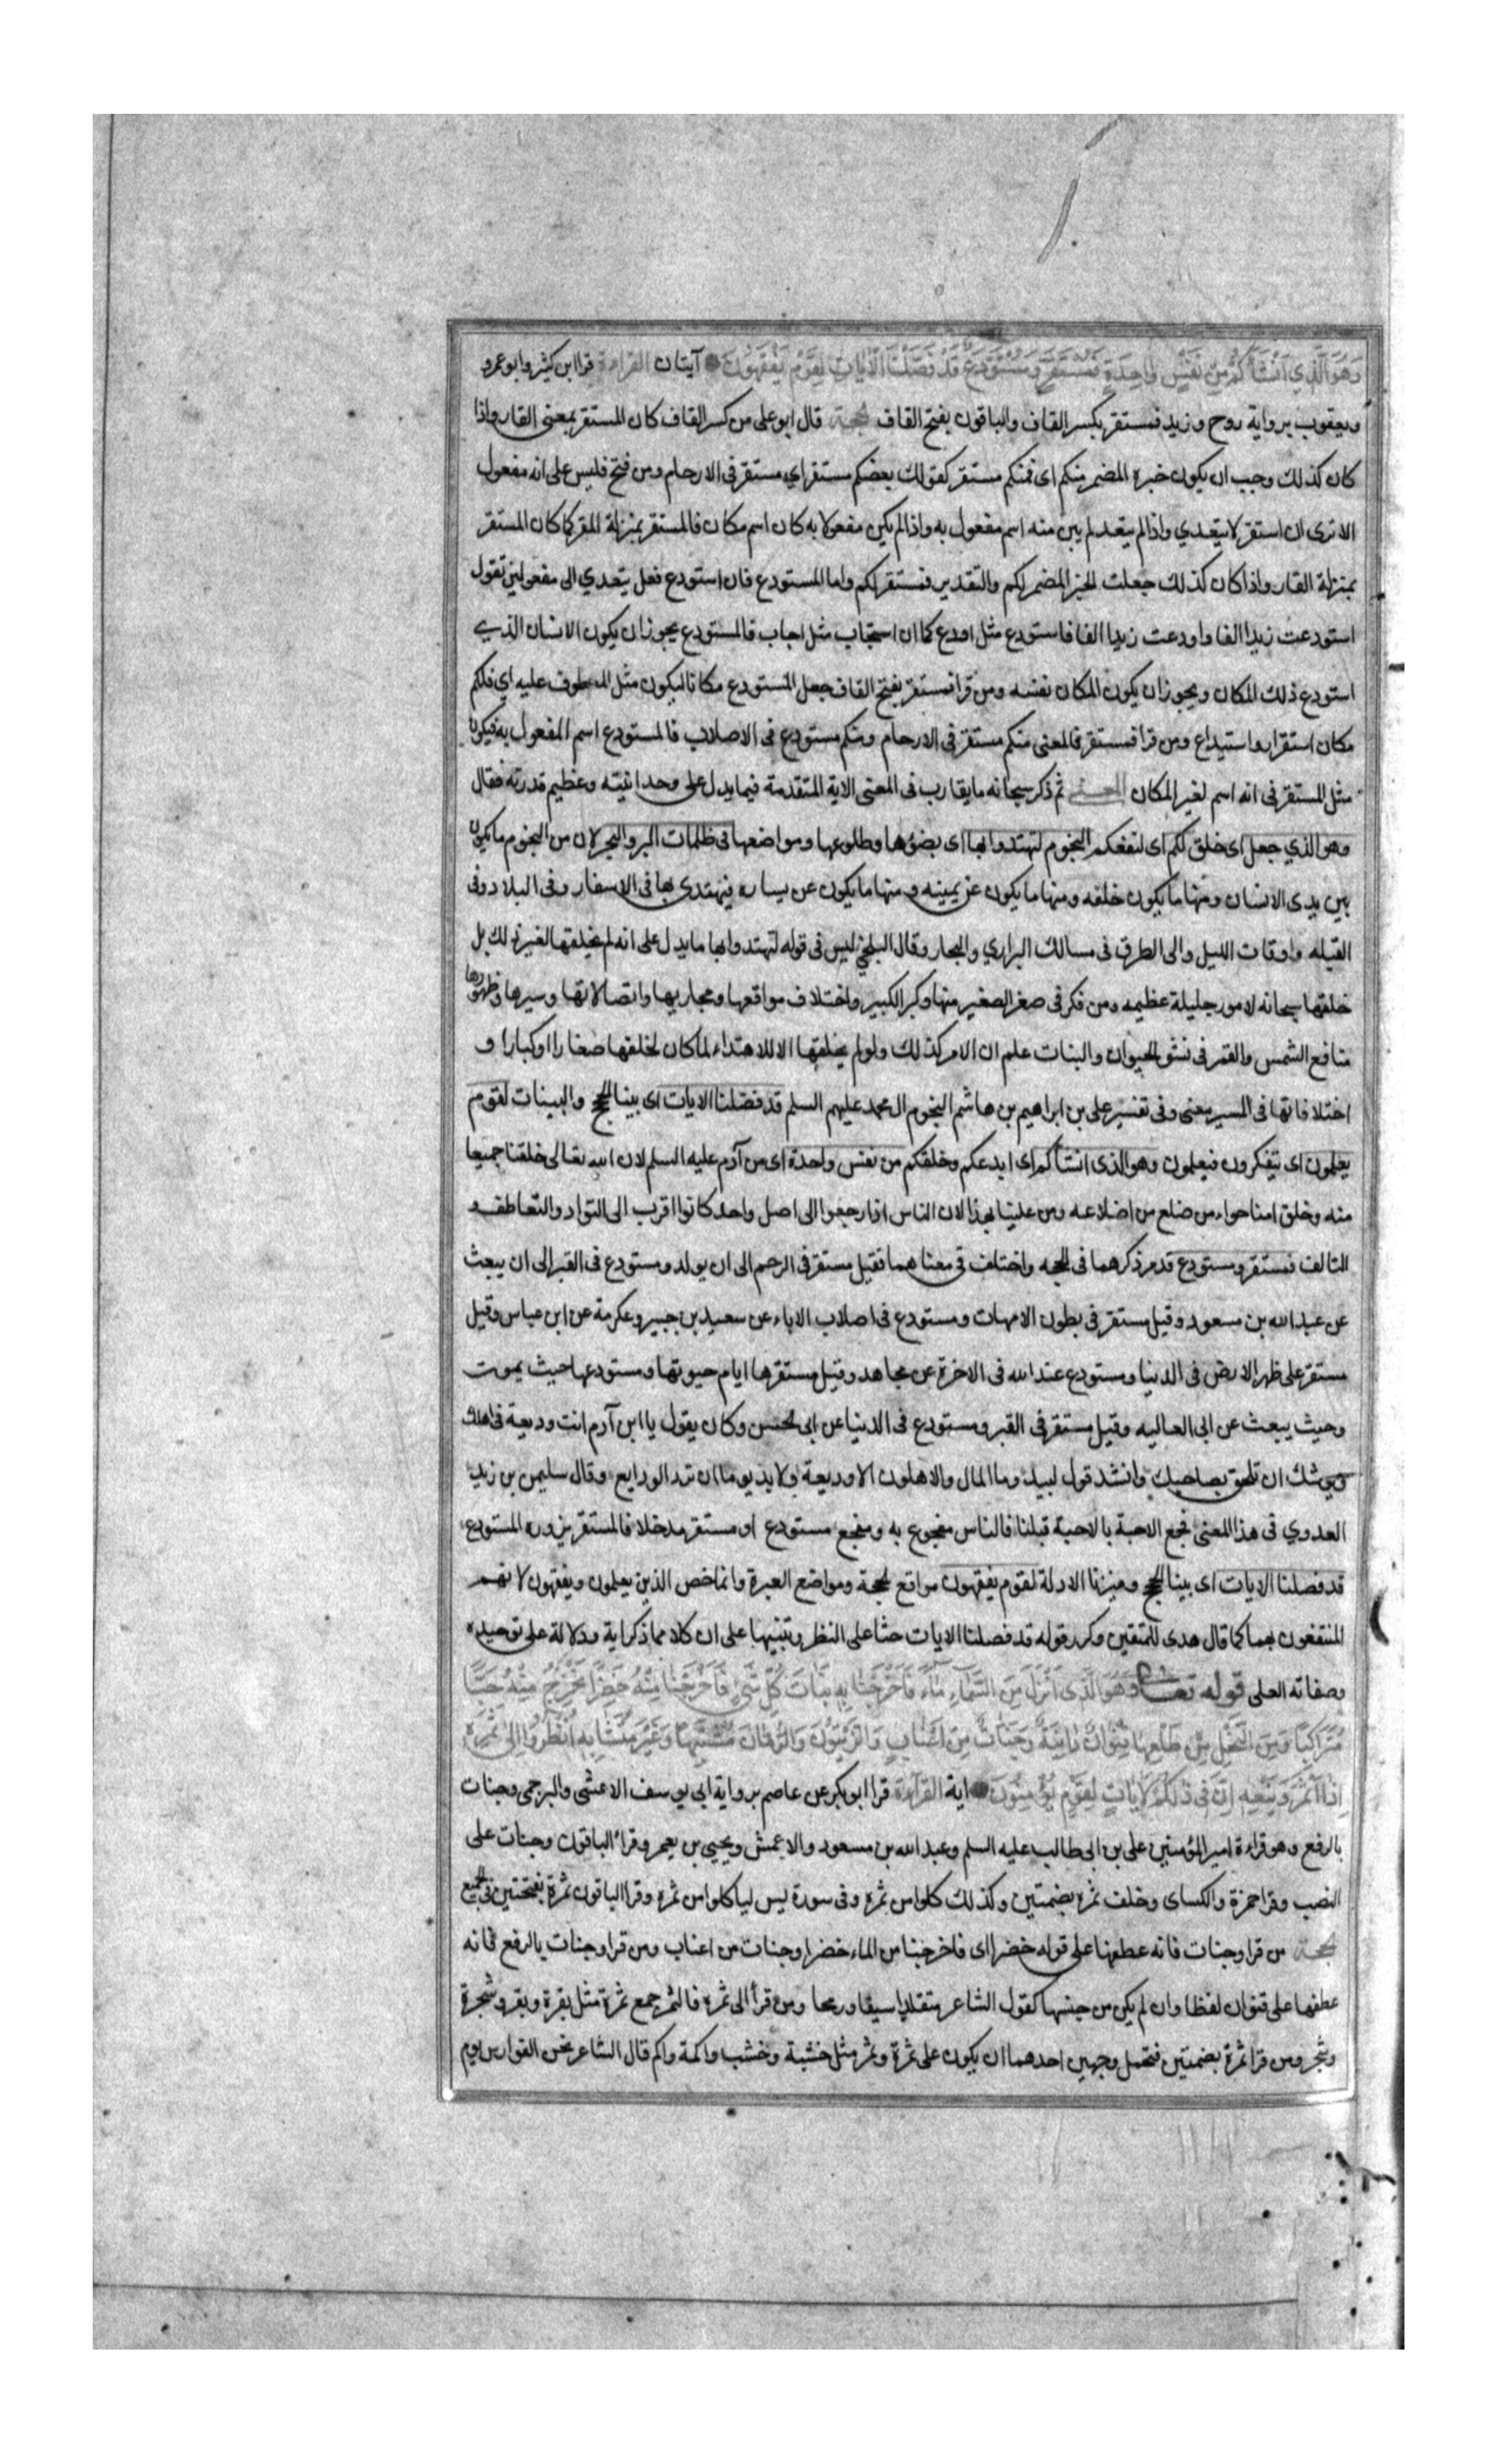 وَهُوَ الَّذِي اَنْشَأَكُمْ مِنْ نَفْسٍ وَاحِدَةٍ فَمُسْتَقَرٌّ وَمُسْتَوْدَعٌ قَدْ فَصَّلْنَا الْآيَاتِ لِقَوْمٍ يَفْقَهُونَ آيتان القراءة قرا ابن كثير وابو عمرو
ويعقوب برواية روح وزيد فمستقر بكسر القاف والباقون بفتح القاف الحجة قال ابو على من كسر القاف كان المستقر بمعنى القار واذا
كان كذلك وجب ان يكون خبره المضمر منكم اى فمنكم مستقر كقولك بعضكم مستقر اي مستقر فى الارحام ومن فتح فليس على انه مفعول
الا ترى ان استقر لا يتعدي واذا لم يتعد لم يبن منه اسم مفعول به واذا لم يكن مفعولا به كان اسم مكان فالمستقر بمنزلة المقر كما كان المستقر
بمنزلة القار واذا كان كذلك جعلت الخبر المضمر لكم والتقدير فمستقر لكم واما المستودع فان استودع فعل يتعدي الى مفعولين تقول
استودعت زيدا الفا واودعت زيدا الفا فاستودع مثل اودع كما ان استجاب مثل اجاب فالمستودع يجوز ان يكون الانسان الذي
استودع ذلك المكان ويجوز ان يكون المكان نفسه ومن قرا فمستقر بفتح القاف جعل المستودع مكانا ليكون مثل المعطوف عليه اي فلكم
مكان استقرار واستيداع ومن قرا فمستقر فالمعنى منكم مستقر فى الارحام ومنكم مستودع فى الاصلاب فالمستودع اسم المفعول به فيكون
مثل المستقر فى انه اسم لغير المكان المعنى ثم ذكر سبحانه ما يقارب فى المعنى الاية المتقدمة فيما يدل على وحدانيته وعظيم قدرته فقال
وهو الذي جعل اى خلق لكم اى لنفعكم النجوم لتهتدوا بها اى بضوءها وطلوعها ومواضعها فى ظلمات البر والبحر لان من النجوم ما يكون
بين يدى الانسان ومنها ما يكون خلفه ومنها ما يكون عن يمينه ومنها ما يكون عن يساره فيهتدى بها فى الاسفار وفى البلاد وفى
القبله واوقات الليل والى الطرق فى مسالك البراري والبحار وقال البلخي ليس فى قوله لتهتدوا بها ما يدل على انه لم يخلقها لغير ذلك بل
خلقها سبحانه لامور جليلة عظيمه ومن فكر فى صغر الصغير منها وكبر الكبير واختلاف مواقعها ومجاريها واتصالاتها وسيرها وظهورها
منافع الشمس والقمر فى نشو الحيوان والنبات علم ان الامر كذلك ولو لم يخلقها الا للاهتداء لما كان لخلقها صغارا وكبارا و
اختلافاتها فى المسير معنى وفى تفسير على بن ابراهيم بن هاشم النجوم ال محمد عليهم السلم قد فصلنا الايات اى بينا الحجج والبينات لقوم
يعلمون اى يتفكرون فيعلمون وهو الذى انشأكم اى ابدعكم وخلقكم من نفس واحدة اى من آدم عليه السلم لان الله تعالى خلقنا جميعا
منه وخلق امنا حواء من ضلع من اضلاعه ومن علينا بهذا لان الناس اذا رجعوا الى اصل واحد كانوا اقرب الى التواد والتعاطف و
التالف فمستقر ومستودع قد مر ذكرهما فى الحجه واختلف فى معناهما فقيل مستقر فى الرحم الى ان يولد ومستودع فى القبر الى ان يبعث
عن عبد الله بن مسعود وقيل مستقر فى بطون الامهات ومستودع فى اصلاب الاباء عن سعيد بن جبير وعكرمة عن ابن عباس وقيل
مستقر على ظهر الارض فى الدنيا ومستودع عند الله فى الاخرة عن مجاهد وقيل مستقرها ايام حيوتها ومستودعها حيث يموت
وحيث يبعث عن ابى العاليه وقيل مستقر فى القبر ومستودع فى الدنيا عن ابى الحسن وكان يقول يا ابن آدم انت وديعة فى اهلك
ويوشك ان تلحق بصاحبك وانشد قول لبيد وما المال والاهلون الا وديعة ولا بد يوما ان ترد الودايع وقال سليمن بن زيد
العدوي فى هذا المعنى فجع الاحبة بالاحبة قبلنا فالناس مفجوع به ومفجع مستودع او مستقر مدخلا فالمستقر يزوره المستودع
قد فصلنا الايات اى بينا الحجج وميزنا الادلة لقوم يفقهون مواقع الحجة ومواضع العبرة وانما خص الذين يعلمون ويفقهون لانهم
المنتفعون بها كما قال هدى للمتقين وكرر قوله قد فصلنا الايات حثا على النظر وتنبيها على ان كلا مما ذكر اية ودلالة على توحيده
وصفاته العلى قوله تعالى وَهُوَ الَّذِى اَنْزَلَ مِنَ السَّمَآءِ مَآءً فَاَخْرَجْنَا بِهِ نَبَاتَ كُلِّ شَىْءٍ فَاَخْرَجْنَا مِنْهُ خَضِرًا نُخْرِجُ مِنْهُ حَبًّا
مُتَرَاكِبًا وَمِنَ النَّخْلِ مِنْ طَلْعِهَا قِنْوَانٌ دَانِيَةٌ وَجَنَّاتٍ مِنْ اَعْنَابٍ وَالزَّيْتُونَ وَالرُّمَّانَ مُشْتَبِهًا وَغَيْرَ مُتَشَابِهٍ اُنْظُرُوا اِلَى ثَمَرِهِ
اِذَا اَثْمَرَ وَيَنْعِهِ اِنَّ فِى ذَلِكُمْ لَآيَاتٍ لِقَوْمٍ يُؤْمِنُونَ اية القرآءة قرا ابو بكر عن عاصم برواية ابى يوسف الاعشى والبرجمى وجنات
بالرفع وهو قراءة امير المؤمنين على بن ابى طالب عليه السلم وعبد الله بن مسعود والاعمش ويحيي بن يعمر وقرأ الباقون وجنات على
النصب وقرا حمزة والكساى وخلف ثمره بضمتين وكذلك كلوا من ثمره وفى سورة يس لياكلوا من ثمره وقرا الباقون ثمرة بفتحتين فى الجميع
الحجة من قرا وجنات فانه عطفها على قوله خضرا اى فاخرجنا من الماء خضرا وجنات من اعناب ومن قرا وجنات بالرفع فانه
عطفها على قنوان لفظا وان لم يكن من جنسها كقول الشاعر متقلدا سيفا ورمحا ومن قرأ الى ثمره فالثمر جمع ثمرة مثل بقرة وبقر وشجرة
وشجر ومن قرا ثمرة بضمتين فتحمل وجهين احدهما ان يكون على ثمرة وثمر مثل خشبة وخشب واكمة واكم قال الشاعر نحن الفوارس يوم